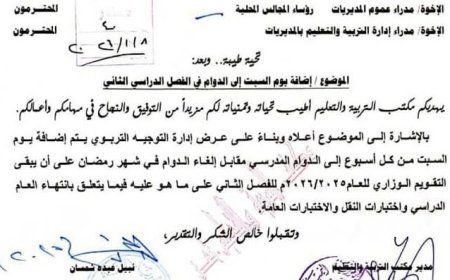 الإخوة/ مدراء عموم المديريات رؤساء المجالس المحلية المحترمون
الإخوة/ مدراء إدارة التربية والتعليم بالمديريات المحترمون
٢٠٢٦/١/٨
تحية طيبة .. وبعد:
الموضوع / إضافة يوم السبت إلى الدوام في الفصل الدراسي الثاني
يهديكم مكتب التربية والتعليم أطيب تحياته وتمنياته لكم مزيداً من التوفيق والنجاح في مهامكم وأعمالكم.
بالإشارة إلى الموضوع أعلاه وبناءً على عرض إدارة التوجيه التربوي يتم إضافة يوم
السبت من كل أسبوع إلى الدوام المدرسي مقابل إلغاء الدوام في شهر رمضان على أن يبقى
التقويم الوزاري للعام ٢٠٢٦/٢٠٢٥م للفصل الثاني على ما هو عليه فيما يتعلق بانتهاء العام
الدراسي واختبارات النقل والاختبارات العامة.
وتقبلوا خالص الشكر والتقدير،
مدير مكتب التربية والتعليم
نبيل عبده شمسان